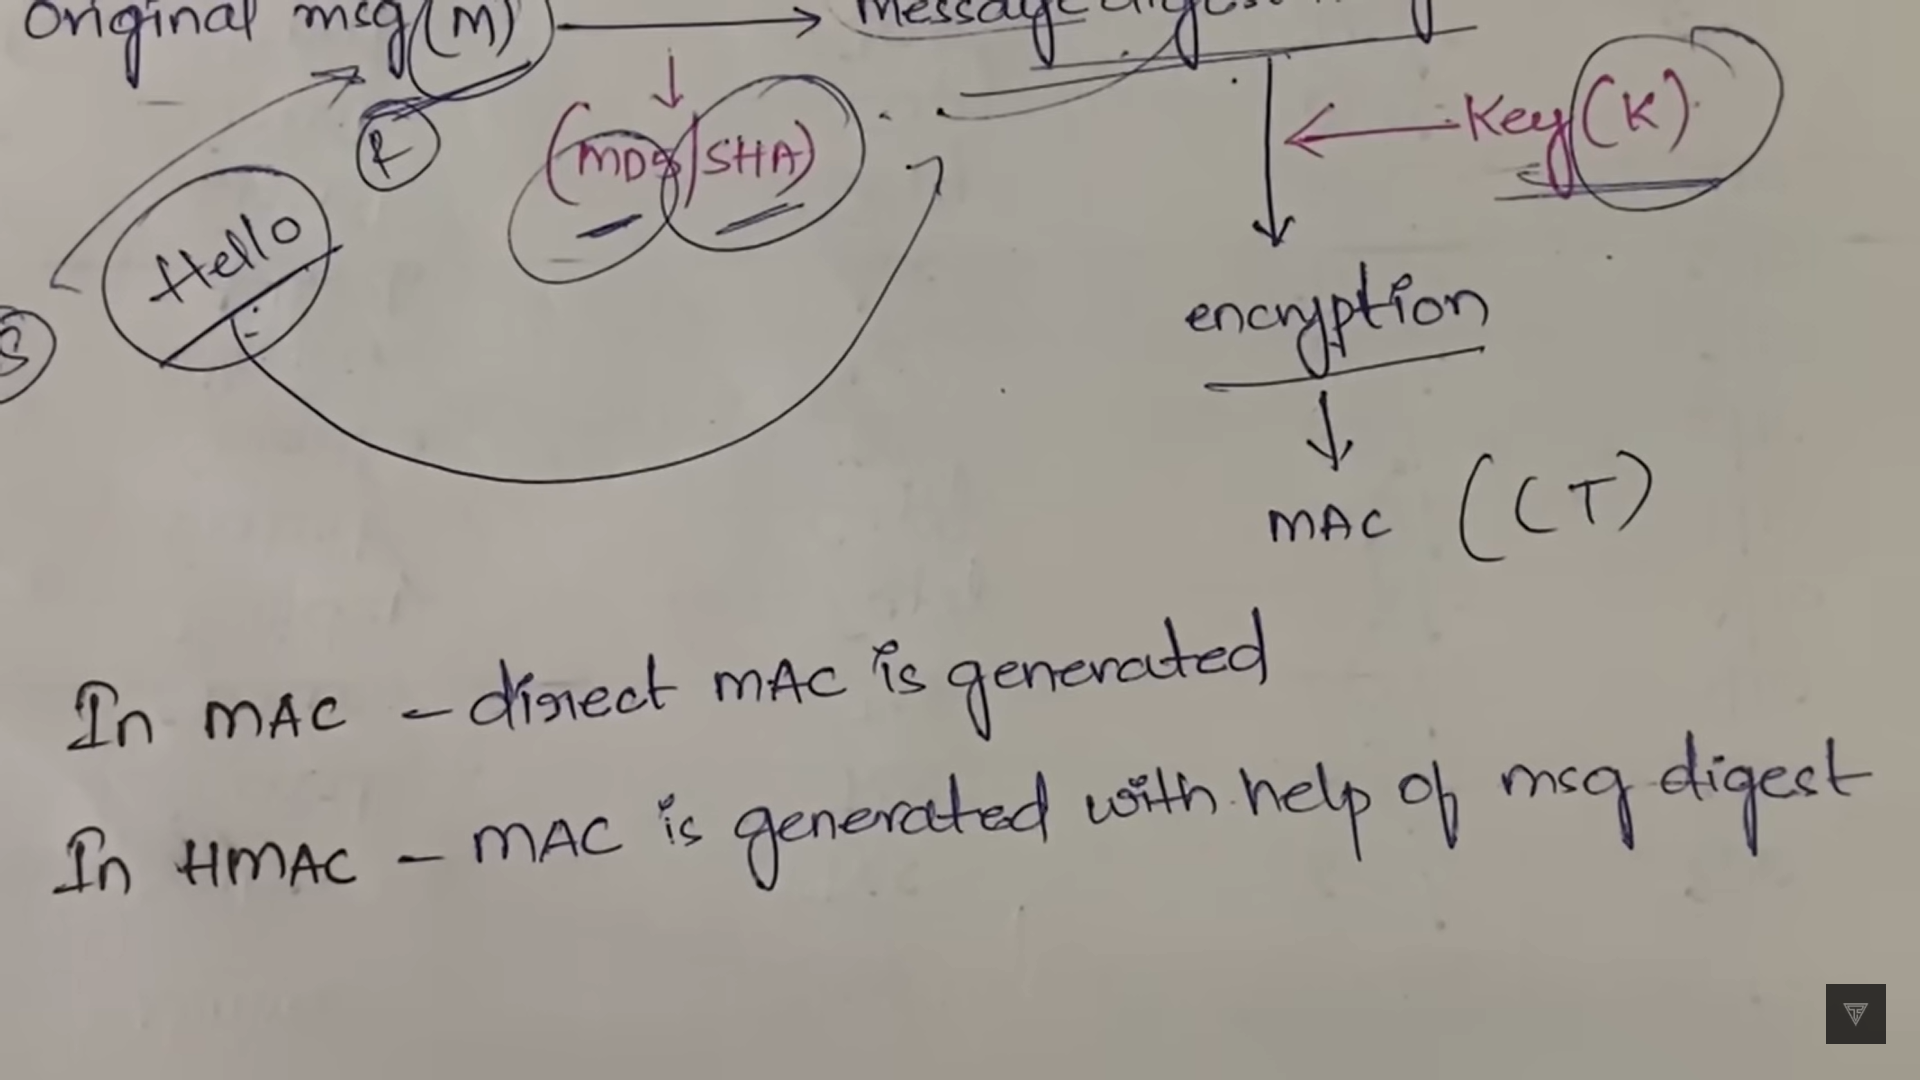 Original msg (M) → Message digest
(MD5/SHA)
Key (K)
R
Hello
S
encryption
MAC (CT)
In MAC - direct MAC is generated
In HMAC - MAC is generated with help of msg digest